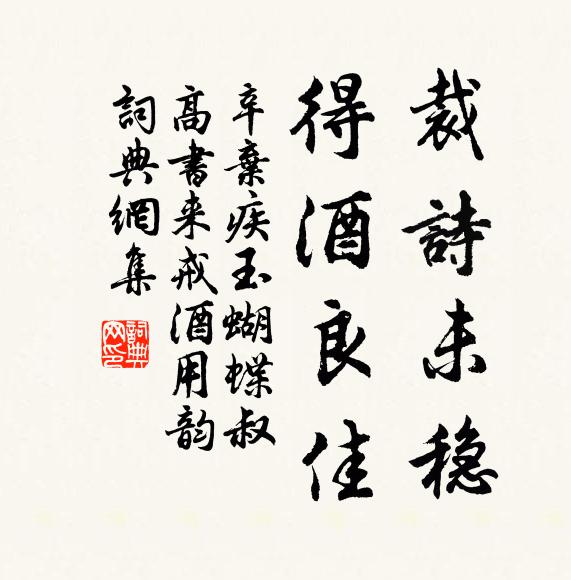 裁詩未穩
得酒良佳
辛棄疾玉蝴蝶叔
高書来戒酒用韵
詞典網集
詞典网印